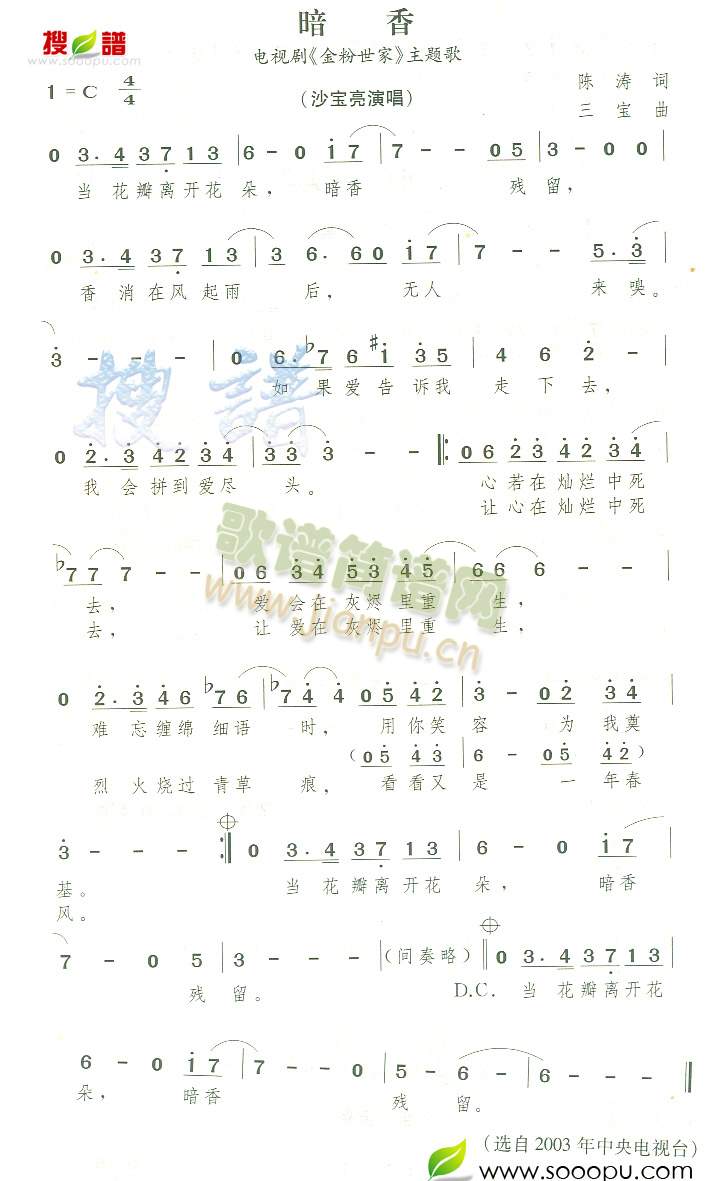 搜 谱
www.sooopu.com
暗 香
电视剧《金粉世家》主题歌
1=C 4/4
(沙宝亮演唱)
陈 涛 词
三 宝 曲
0 3.4 3 7 1 3 | 6 - 0 i 7 | 7 - - 0 5 | 3 - 0 0 |
当 花 瓣 离 开 花 朵, 暗 香 残 留,
0 3.4 3 7 1 3 | 3 6. 6 0 i 7 | 7 - - 5.3 |
香 消 在 风 起 雨 后, 无 人 来 嗅。
3 - - - | 0 6.♭7 6 #i 3 5 | 4 6 2 - |
如 果 爱 告 诉 我 走 下 去,
0 2.3 4 2 3 4 | 3 3 3 - - |: 0 6 2 3 4 2 3 4 |
我 会 拼 到 爱 尽 头。 心 若 在 灿 烂 中 死
让 心 在 灿 烂 中 死
♭7 7 7 - - | 0 6 3 4 5 3 4 5 | 6 6 6 - - |
去, 爱 会 在 灰 烬 里 重 生,
去, 让 爱 在 灰 烬 里 重 生,
0 2.3 4 6 ♭7 6 | ♭7 4 4 0 5 4 2 | 3 - 0 2 3 4 |
难 忘 缠 绵 细 语 时, 用 你 笑 容 为 我 奠
(0 5 4 3 | 6 - 0 5 4 2)
烈 火 烧 过 青 草 痕, 看 看 又 是 一 年 春
3 - - - :| 0 3.4 3 7 1 3 | 6 - 0 i 7 |
基。 当 花 瓣 离 开 花 朵, 暗 香
风。
7 - 0 5 | 3 - - - | (间奏略) || 0 3.4 3 7 1 3 |
残 留。 D.C. 当 花 瓣 离 开 花
6 - 0 i 7 | 7 - - 0 5 | 6 - - 6 | 6 - - - ||
朵, 暗 香 残 留。
(选自 2003 年中央电视台)
www.sooopu.com
搜 谱
歌谱简谱网
www.jianpu.cn